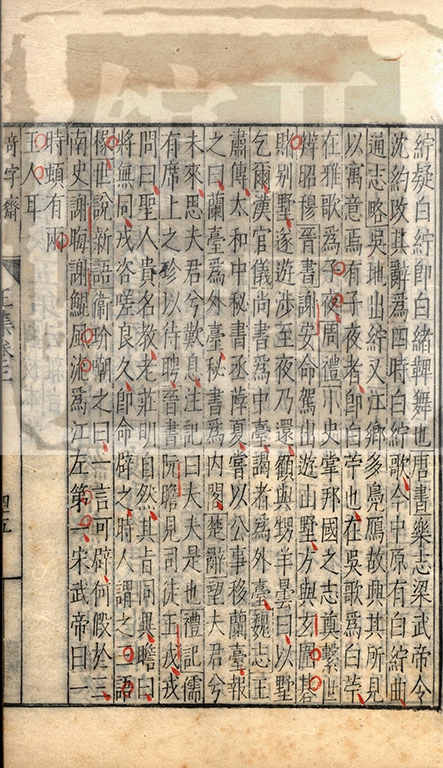 紵疑白紵即白緒鞞舞也唐書樂志梁武帝令
沈約改其辭為四時白紵歌今中原有白紵曲
通志略吳地出紵又江鄉多鳧鴈故興其所見
以寓意焉有子夜者即白苧也在吳歌為白苧
在雅歌為子夜周禮小史掌邦國之志奠繫世
辨昭穆晉書謝安命駕出遊山墅方與玄圍棊
賭别墅遂遊涉至夜乃還顧與甥羊曇曰以墅
乞爾漢官儀尚書為中臺謁者為外臺魏志王
肅傳太和中秘書丞薛夏嘗以公事移蘭臺報
之曰蘭臺為外臺秘書為内閣楚辭望夫君兮
未來思夫君兮歎息注記曰夫夫是也禮記儒
有席上之珍以待聘晉書阮瞻見司徒王戎戎
問曰聖人貴名教老莊明自然其旨同異瞻曰
將無同戎咨嗟良久即命辟之時人謂之三語
掾世說新語衛玠嘲之曰一言可辟何假於三
南史謝晦謝鯤風流為江左第一宋武帝曰一
時頓有兩
玉人耳
奇字齋